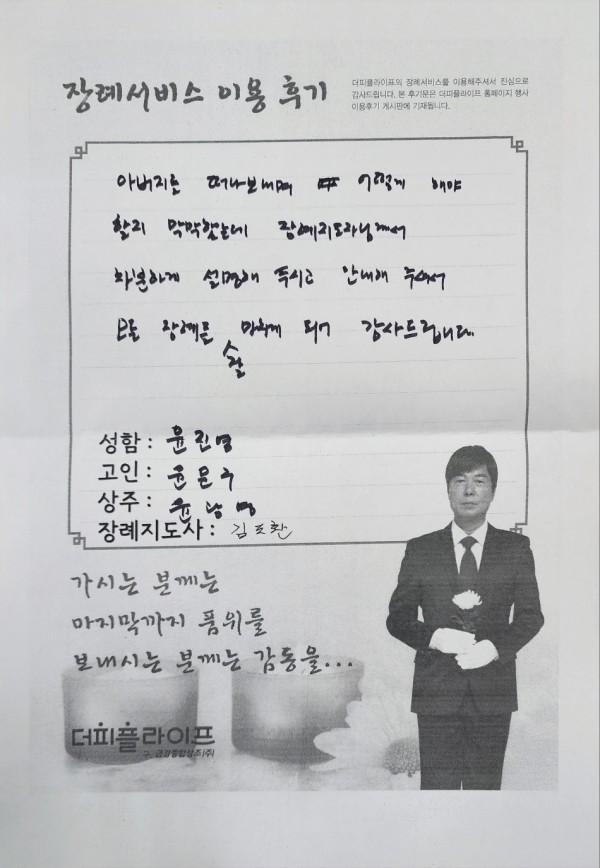 장례서비스 이용 후기
더피플라이프의 장례서비스를 이용해주셔서 진심으로
감사드립니다. 본 후기문은 더피플라이프 홈페이지 행사
이용후기 게시판에 기재됩니다.
아버지를 떠나보내며 어떻게 해야
할지 막막했는데 장례지도사님께서
차분하게 설명해 주시고 안내해 주셔서
장례를 잘 마치게 되어 감사드립니다.
성함 : 윤진영
고인 : 윤문구
상주 : 윤
장례지도사 : 김
가시는 분께는
마지막까지 품위를
보내시는 분께는 감동을...
더피플라이프
구. 금강종합상조(주)